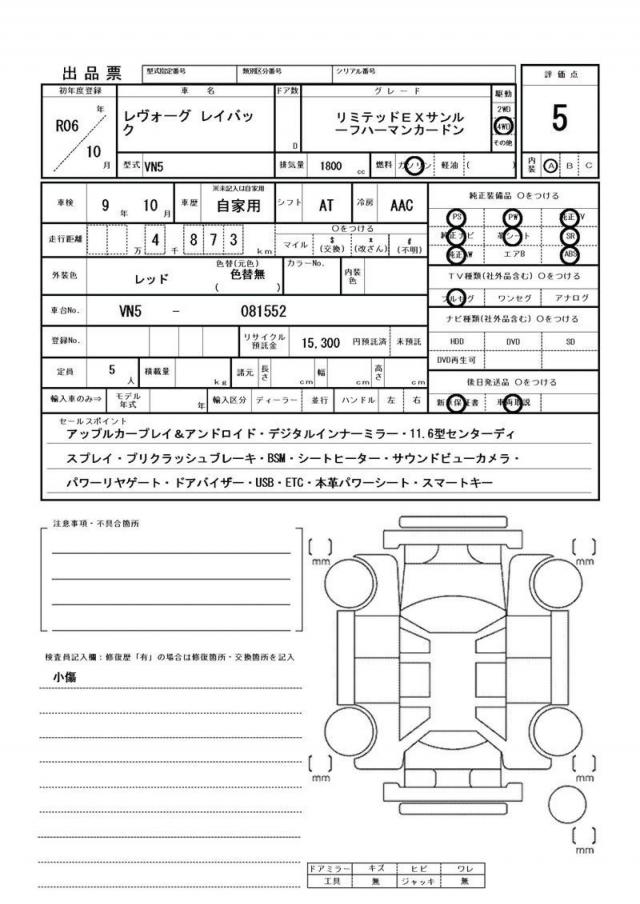 出品票 型式指定番号 類別区分番号 シリアル番号 評価点
初年度登録 車名 ドア数 グレード 駆動
R06 年 10 月 レヴォーグ レイバック D リミテッドEXサンルーフハーマンカードン 2WD 4WD その他 5
型式 VN5 排気量 1800 cc 燃料 ガソリン 軽油 ( ) 内装 A B C
車検 9 年 10 月 車歴 ※未記入は自家用 自家用 シフト AT 冷房 AAC
純正装備品 ○をつける
走行距離 万 4 千 8 7 3 km ○をつける マイル $ (交換) * (改ざん) # (不明)
PS PW 純正TV
純正ナビ 革シート SR
純正AW エアB ABS
外装色 レッド 色替(元色) 色替無 ( ) カラーNo. 内装色
TV種類(社外品含む) ○をつける
フルセグ ワンセグ アナログ
車台No. VN5 - 081552
ナビ種類(社外品含む) ○をつける
登録No. リサイクル預託金 15,300 円預託済 未預託
HDD DVD SD
DVD再生可
定員 5 人 積載量 kg 諸元 長さ cm 幅 cm 高さ cm
後日発送品 ○をつける
輸入車のみ⇒ モデル年式 年 輸入区分 ディーラー 並行 ハンドル 左 右
新車保証書 車両取説
セールスポイント
アップルカープレイ&アンドロイド・デジタルインナーミラー・11.6型センターディ
スプレイ・プリクラッシュブレーキ・BSM・シートヒーター・サウンドビューカメラ・
パワーリヤゲート・ドアバイザー・USB・ETC・本革パワーシート・スマートキー
注意事項・不具合箇所
[ ] mm [ ] mm
検査員記入欄：修復歴「有」の場合は修復箇所・交換箇所を記入
小傷
[ ] mm [ ] mm
[ ] mm
ドアミラー キズ ヒビ ワレ
工具 無 ジャッキ 無